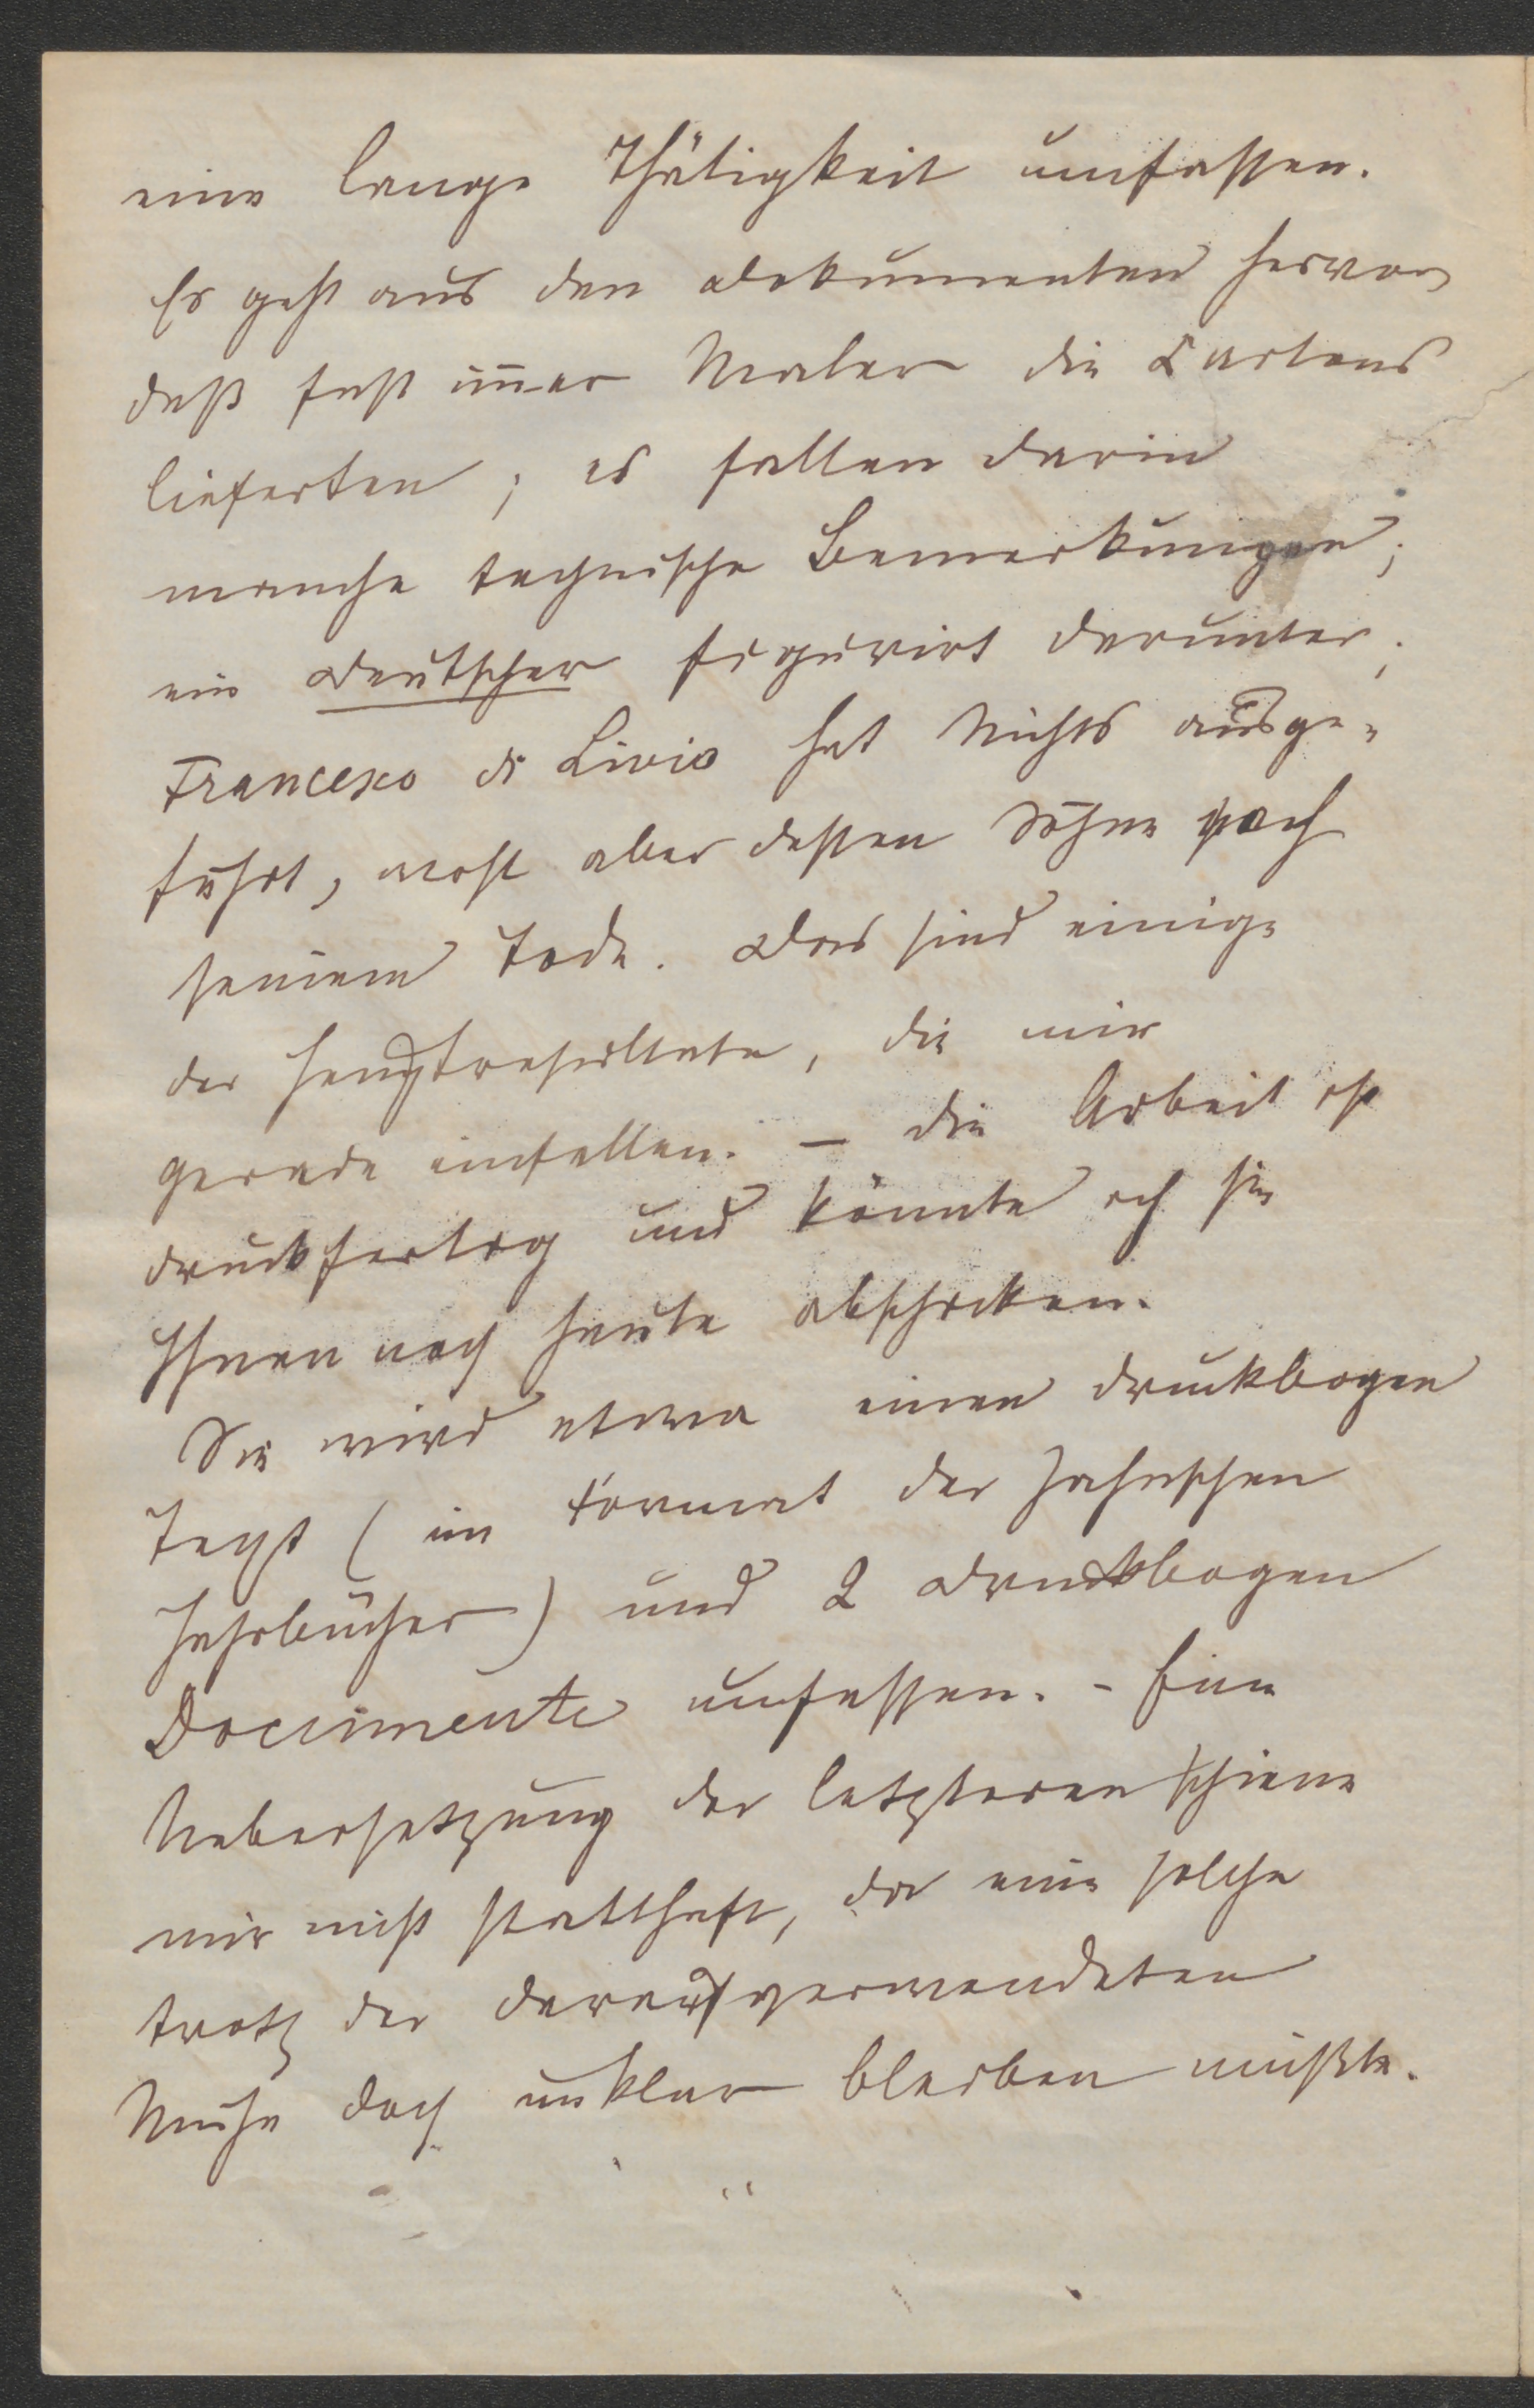 eine lange Thätigkeit umfassen.
Es geht aus den Dokumenten hervor
daß fast im̅er Maler die Cartons
lieferten; es fallen darin
manche technische Bemerkungen;
ein Deutscher figurirt darunter;
Francesco di Livio hat Nichts ausge-
führt, wohl aber dessen Söhne nach
seinem Tode. Das sind einige
der Hauptresultate, die mir
gerade einfallen. – Die Arbeit ist
druckfertig und könnte ich sie
Ihnen noch heute abschicken.
Sie wird etwa einen Druckbogen
Text (im Format der Zahnschen
Jahrbücher) und 2 Druckbogen
Documente umfassen. – Eine
Uebersetzung der letzteren schiene
mir nicht statthaft, da eine solche
trotz der darauf verwendeten
Mühe doch unklar bleiben müßte.